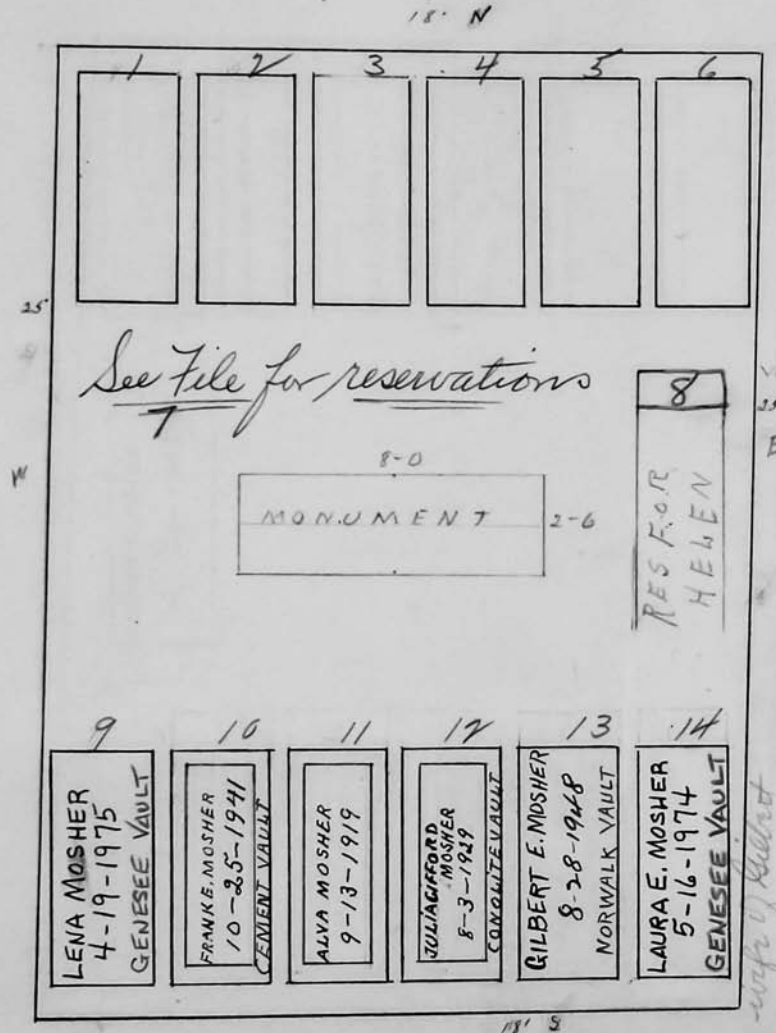 18' N
1 2 3 4 5 6
25
See File for reservations
7
8
25
W
E
8-0
MONUMENT
2-6
RES FOR
HELEN
9 10 11 12 13 14
LENA MOSHER
4-19-1975
GENESEE VAULT
FRANK E. MOSHER
10-25-1941
CEMENT VAULT
ALVA MOSHER
9-13-1919
JULIA GIFFORD
MOSHER
8-3-1929
CONOLITE VAULT
GILBERT E. MOSHER
8-28-1948
NORWALK VAULT
LAURA E. MOSHER
5-16-1974
GENESEE VAULT
-wife of Gilbert
18' S